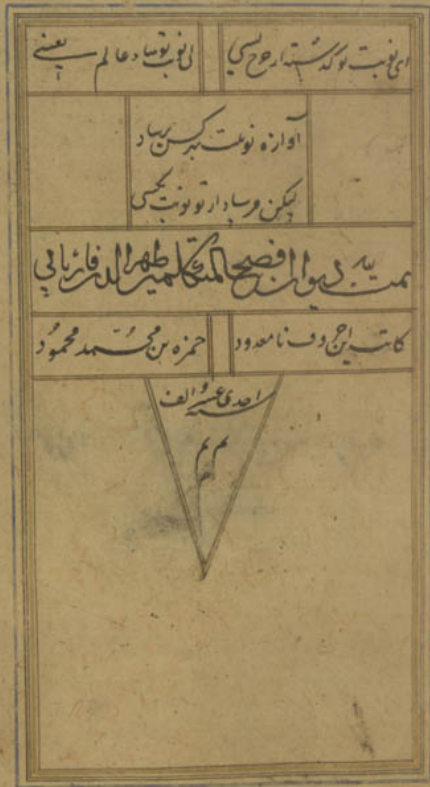 ای نوبت تو گذشته از چرخ بسی
بی نوبت تو مباد عالم نفسی
آوازه نوبتت بهر کس برساد
لیکن مرساد از تو نوبت بکسی
تمت دیوان افصح المتکلمین ظهیر الدین فاریابی
کاتب این حروف نامعدود
حمزه بن محمد محمود
سنه احدی عشر و الف
م م
م